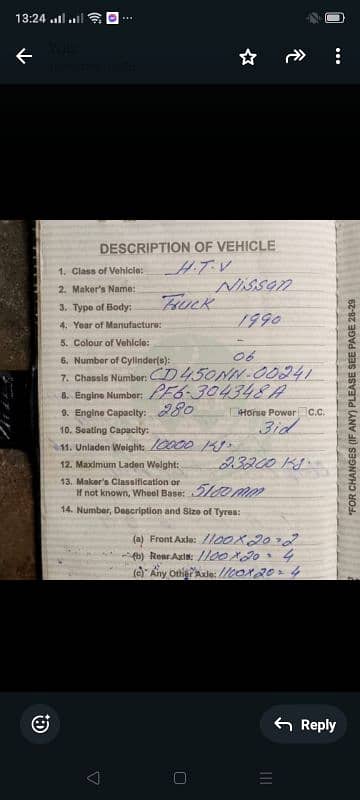 13:24
DESCRIPTION OF VEHICLE
1. Class of Vehicle: H.T.V
2. Maker's Name: Nissan
3. Type of Body: Truck
4. Year of Manufacture: 1990
5. Colour of Vehicle: -
6. Number of Cylinder(s): 06
7. Chassis Number: CD450NN-00241
8. Engine Number: PF6-304348A
9. Engine Capacity: 280 Horse Power C.C.
10. Seating Capacity:
11. Unladen Weight: 10000 Kg.
12. Maximum Laden Weight: 23200 Kg.
13. Maker's Classification or
if not known, Wheel Base: 5100mm
14. Number, Description and Size of Tyres:
(a) Front Axle: 1100X20=2
(b) Rear Axle: 1100X20=4
(c) Any Other Axle: 1100X20=4
*FOR CHANGES (IF ANY) PLEASE SEE PAGE 28-29
Reply